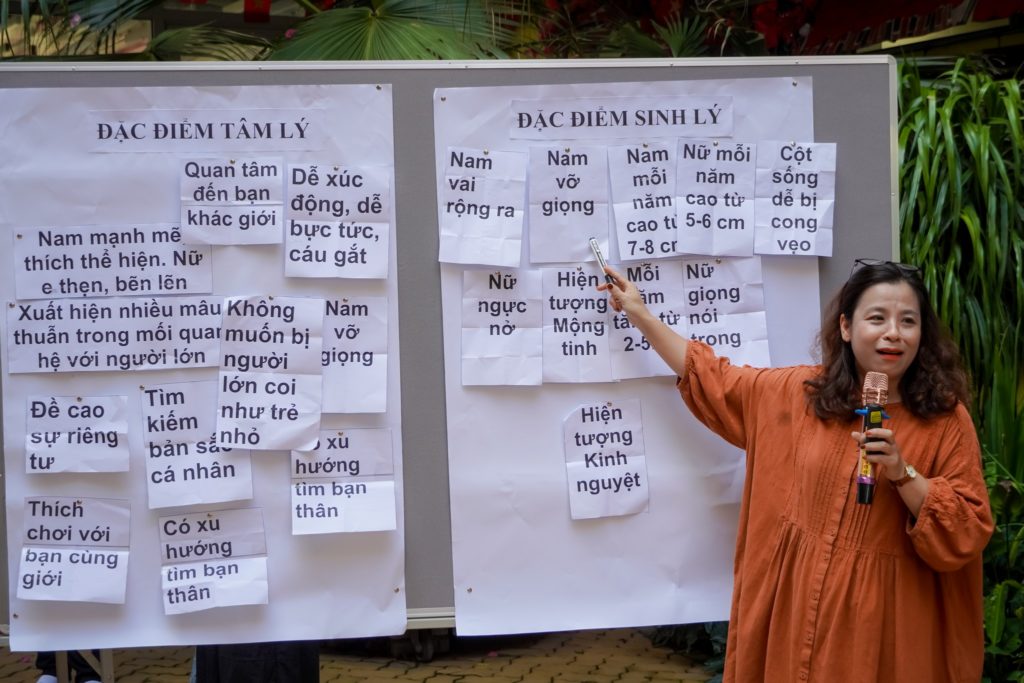 ĐẶC ĐIỂM TÂM LÝ
Quan tâm
đến bạn
khác giới
Dễ xúc
động, dễ
bực tức,
cáu gắt
Nam mạnh mẽ
thích thể hiện. Nữ
e thẹn, bẽn lẽn
Xuất hiện nhiều mâu
thuẫn trong mối quan
hệ với người lớn
Không
muốn bị
người
lớn coi
như trẻ
nhỏ
Nam
vỡ
giọng
Đề cao
sự riêng
tư
Tìm
kiếm
bản sắc
cá nhân
xu
hướng
tìm bạn
thân
Thích
chơi với
bạn cùng
giới
Có xu
hướng
tìm bạn
thân
ĐẶC ĐIỂM SINH LÝ
Nam
vai
rộng ra
Nam
vỡ
giọng
Nam
mỗi
năm
cao từ
7-8 cm
Nữ mỗi
năm
cao từ
5-6 cm
Cột
sống
dễ bị
cong
vẹo
Nữ
ngực
nở
Hiện
tượng
Mộng
tinh
Mỗi
năm
từ
2-5
Nữ
giọng
nói
trong
Hiện
tượng
Kinh
nguyệt